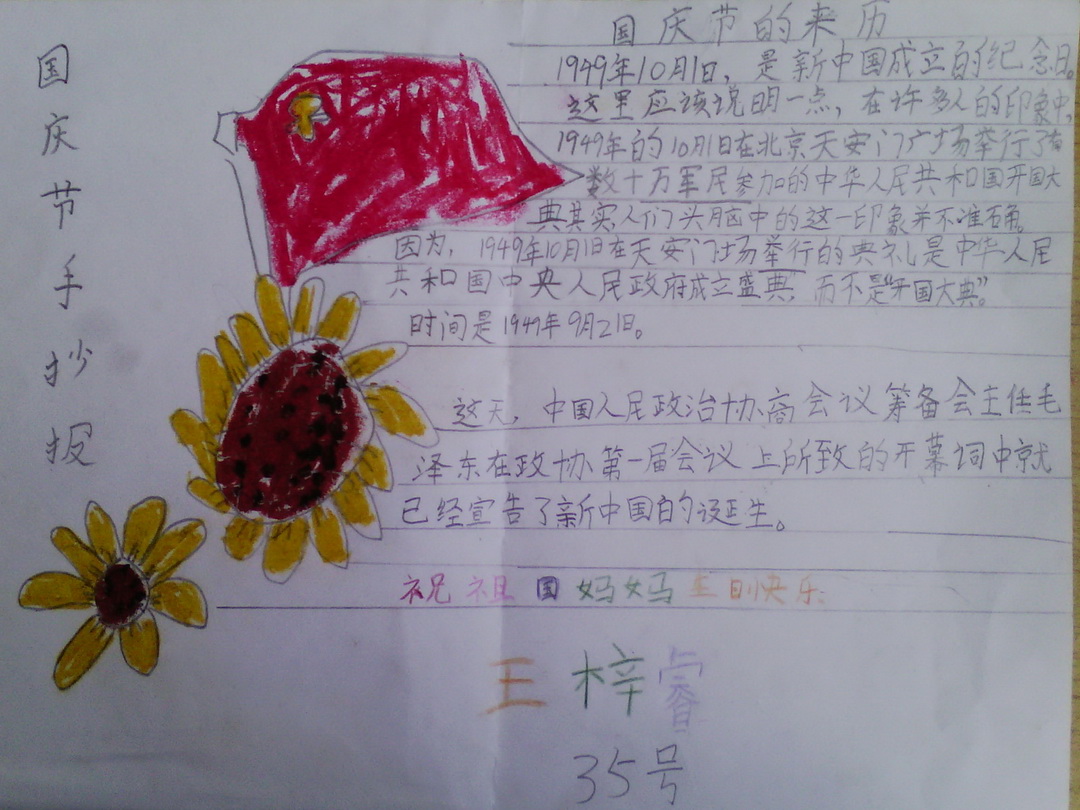 国庆节手抄报
国庆节的来历
1949年10月1日，是新中国成立的纪念日。
这里应该说明一点，在许多人的印象中，
1949年的10月1日在北京天安门广场举行了有
数十万军民参加的中华人民共和国开国大
典其实人们头脑中的这一印象并不准确。
因为，1949年10月1日在天安门场举行的典礼是中华人民
共和国中央人民政府成立盛典，而不是“开国大典”。
时间是1949年9月21日。
这天，中国人民政治协商会议筹备会主任毛
泽东在政协第一届会议上所致的开幕词中就
已经宣告了新中国的诞生。
祝祖国妈妈生日快乐
王梓睿
35号